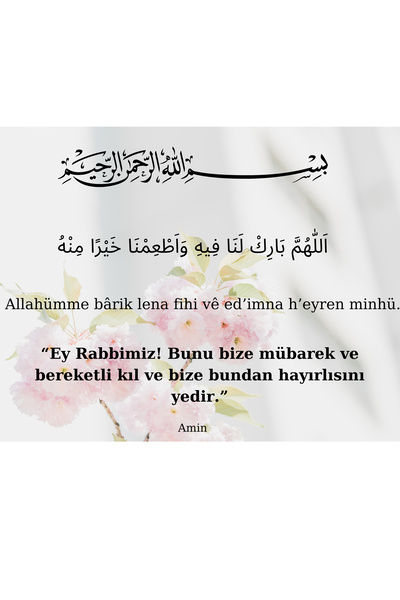 بِسْمِ اللهِ الرَّحْمٰنِ الرَّحِيْمِ
اَللّٰهُمَّ بَارِكْ لَنَا فِيهِ وَاَطْعِمْنَا خَيْرًا مِنْهُ
Allahümme bârik lena fihi vê ed’imna h’eyren minhü.
“Ey Rabbimiz! Bunu bize mübarek ve
bereketli kıl ve bize bundan hayırlısını
yedir.”
Amin